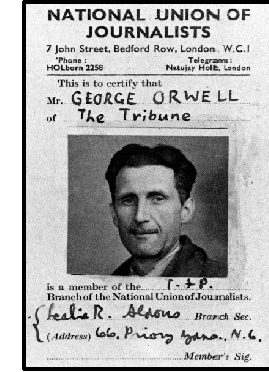 NATIONAL UNION OF
JOURNALISTS
7 John Street, Bedford Row, London W.C.1
'Phone : Telegrams :
HOLborn 2258 Natujay Holb, London
This is to certify that
Mr. GEORGE ORWELL
of The Tribune
is a member of the T. & P.
Branch of the National Union of Journalists.
Leslie R. Aldous Branch Sec.
(Address) 66, Priory Gdns. N.6.
Member's Sig.